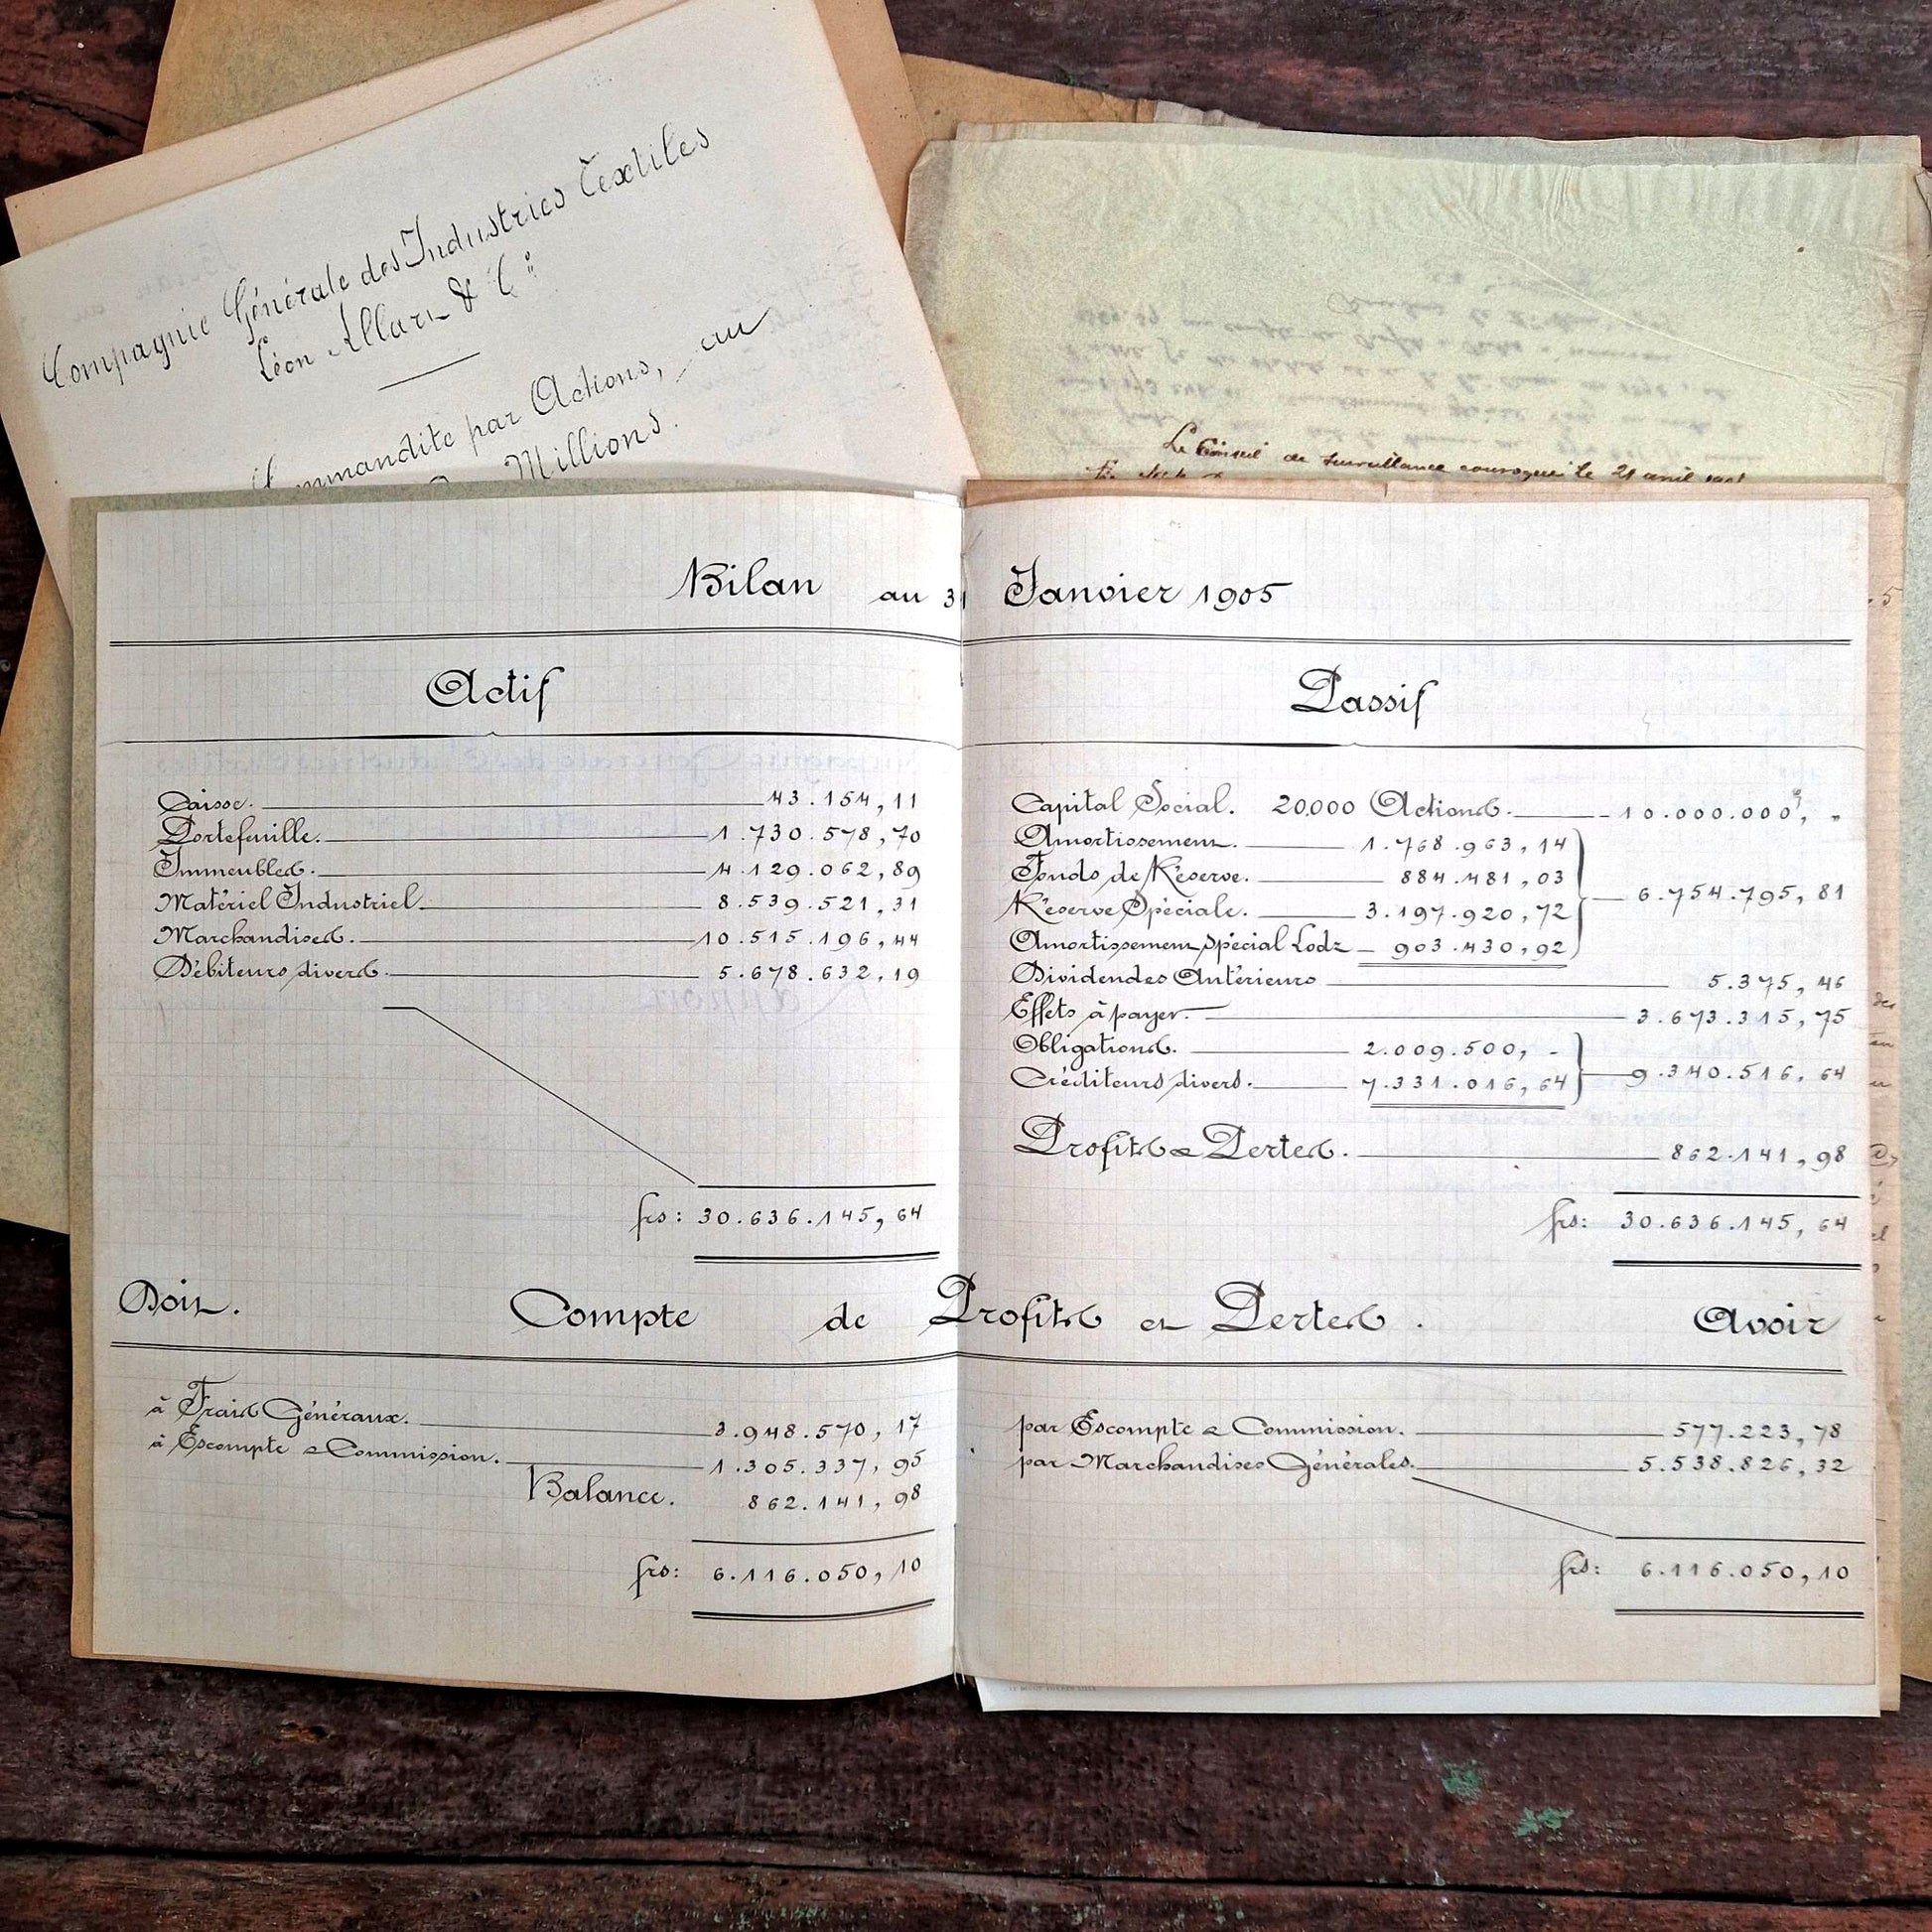 Compagnie Générale des Industries Textiles
Léon Allart & Cie
Commandite par Actions, au
Millions.
Le Conseil de Surveillance convoqué le 21 avril
Bilan au 31 Janvier 1905
Actif
Caisse. 43.154,11
Portefeuille. 1.730.578,70
Immeubles. 4.129.062,89
Matériel Industriel. 8.539.521,31
Marchandises. 10.515.196,44
Débiteurs divers. 5.678.632,19
frs: 30.636.145,64
Passif
Capital Social. 20,000 Actions. 10.000.000f, "
Amortissement. 1.768.963,14
Fonds de Réserve. 884.481,03
Réserve Spéciale. 3.197.920,72
Amortissement spécial Lodz 903.430,92
6.754.795,81
Dividendes Antérieurs 5.375,46
Effets à payer. 3.673.315,75
Obligations. 2.009.500, -
Créditeurs divers. 7.331.016,64
9.340.516,64
Profits & Pertes. 862.141,98
frs: 30.636.145,64
Doit. Compte de Profits et Pertes. Avoir
à Frais Généraux. 3.948.570,17
à Escompte & Commission. 1.305.337,95
Balance. 862.141,98
frs: 6.116.050,10
par Escompte & Commission. 577.223,78
par Marchandises Générales. 5.538.826,32
frs: 6.116.050,10